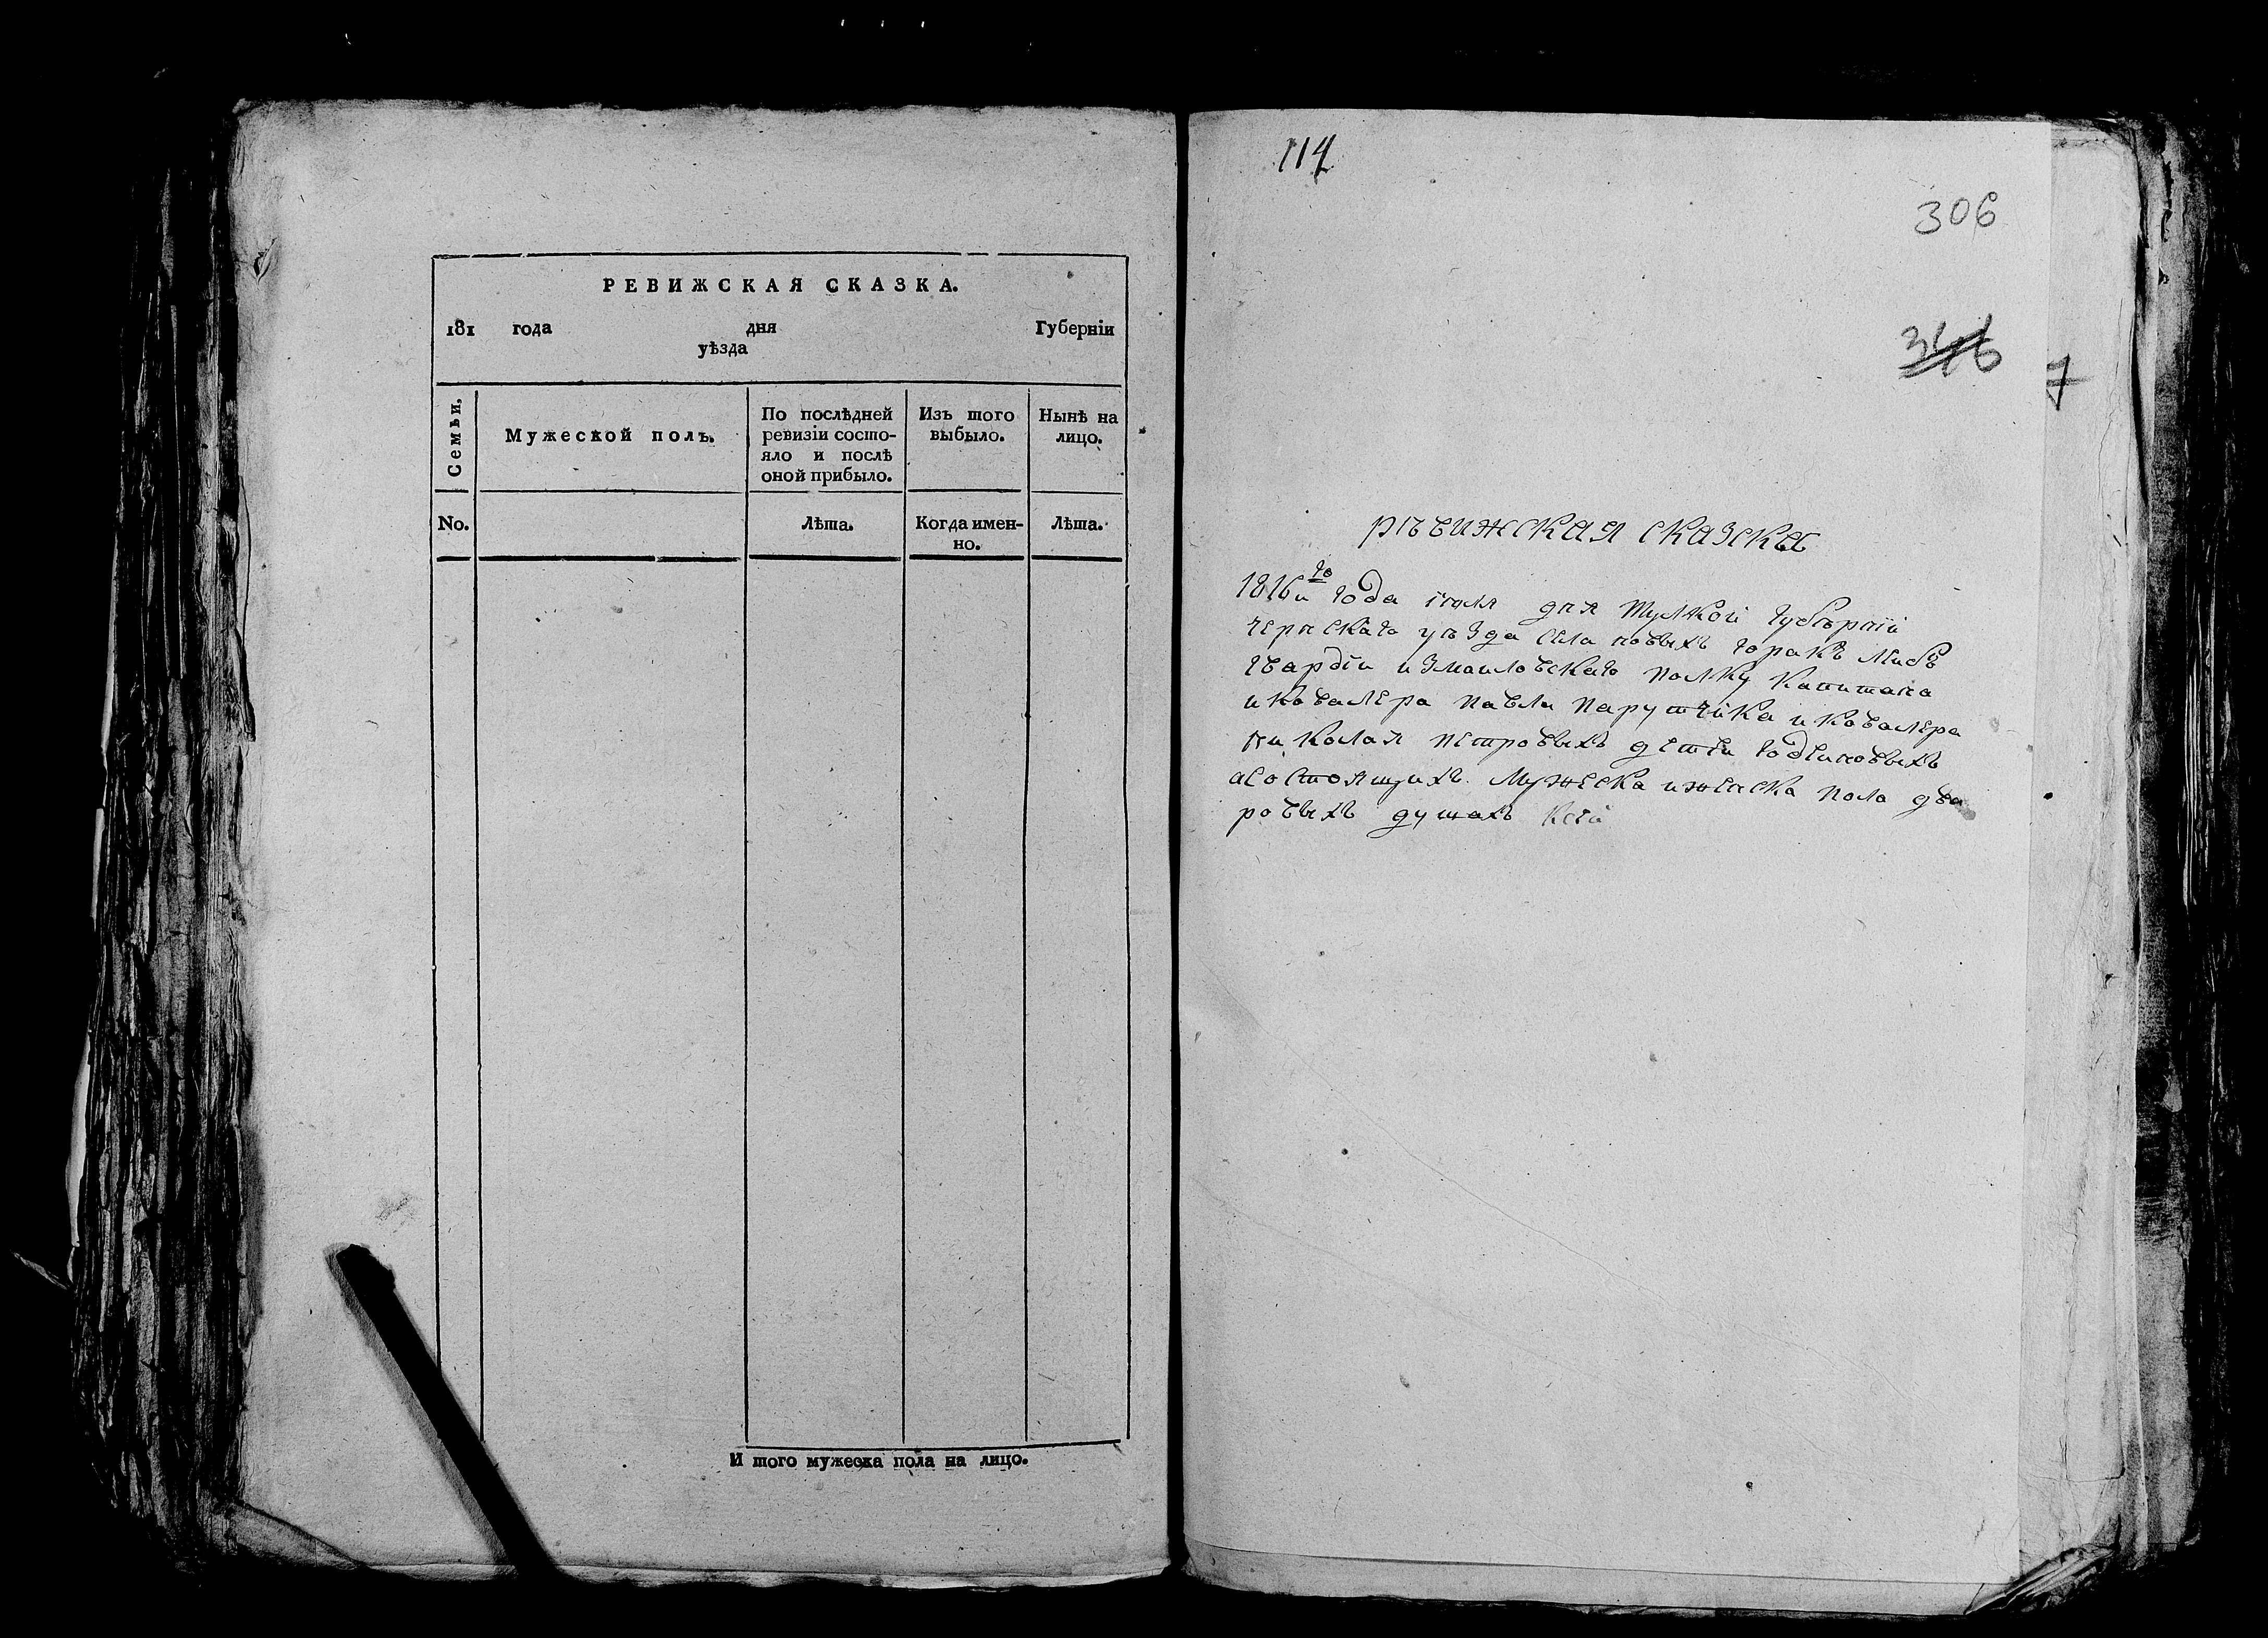 РЕВИЖСКАЯ СКАЗКА.
181 года дня Губерніи
уѣзда
Семьи.
Мужеской полъ.
По послѣдней
ревизіи состо-
яло и послѣ
оной прибыло.
Изъ того
выбыло.
Нынѣ на
лицо.
No.
Лѣта.
Когда имен-
но.
Лѣта.
И того мужеска пола на лицо.
114
306
346
7
рѣвижская сказска
1816го года июля дня Тулской губѣрнїи
чернскаго уѣзда села новыхъ горакъ Лейбъ
гвардїи измаиловскаго полку капитана
и ковалера павла парутчика и ковалера
николая петровыхъ детеи годеиновыхъ
асостоящихъ мужеска иженска пола два
ровыхъ душахъ